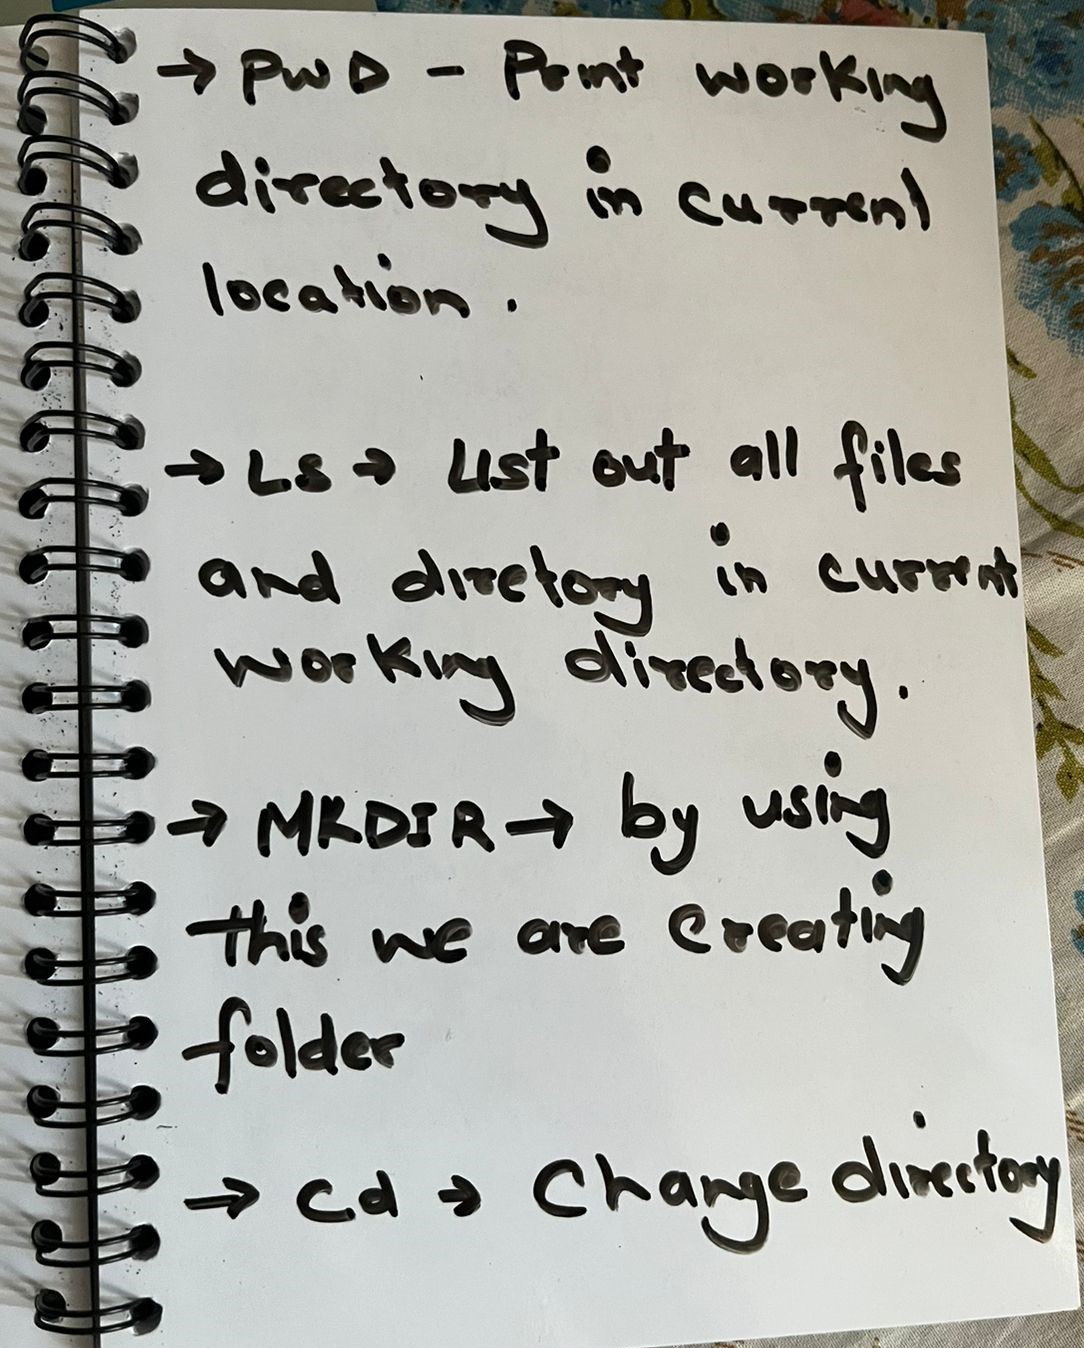 → PWD - Print working
directory in current
location.
→ LS → List out all files
and diretory in current
working directory.
→ MKDIR → by using
this we are creating
folder
→ Cd → Change directory